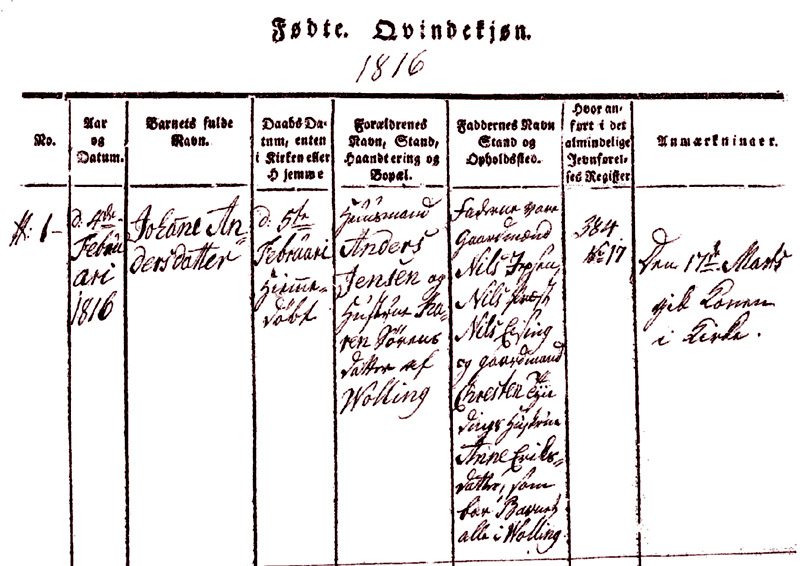 Fødte. Qvindekjøn.
1816
No.
Aar
og
Datum.
Barnets fulde
Navn.
Daabs Da-
tum, enten
i Kirken eller
Hjemme
Forældrenes
Navn, Stand,
Haandtering og
Bopæl.
Faddernes Navn
Stand og
Opholdssted.
Hvor an-
ført i det
almindelige
Jevnførel-
ses Register
Anmærkninger.
N: 1-
d: 4de
Febru
ari
1816
Johane An-
dersdatter
d: 5te
Februari
Hiemme-
døbt
Huusmand
Anders
Jensen og
Hustrue Ka-
ren Sørens
datter af
Wolling
Fadderne vare
Gaardmænd
Nils Jepsen,
Nils
Nils Eising
og gaardmand
Chresten Tyi
dings Hustrue
Anne Eriks-
datter, som
bar Barnet
alle i Wolling
384
No 17
Den 17de Marts
gik Konen
i Kirke.